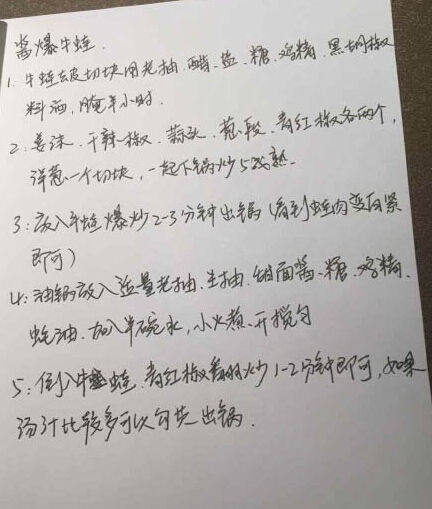 酱爆牛蛙.
1. 牛蛙去皮切块用老抽、醋、盐、糖、鸡精、黑胡椒
料酒,腌半小时.
2: 姜沫、干辣椒、蒜头、葱段、青红椒各两个,
洋葱一个切块,一起下锅炒5成熟.
3: 放入牛蛙爆炒2-3分钟出锅(看到蛙肉变白紧
即可)
4: 油锅放入适量老抽、生抽、甜面酱、糖、鸡精、
蚝油、加入半碗水,小火煮、开搅匀
5: 倒入牛蛙、青红椒翻炒1-2分钟即可,如果
汤汁比较多可以勾芡出锅.